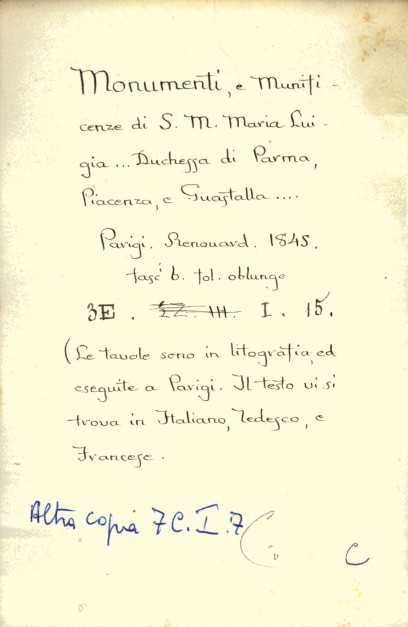 Monumenti, e Munifi-
cenze di S. M. Maria Lui-
gia ... Duchessa di Parma,
Piacenza, e Guastalla ....
Parigi. Renouard. 1845.
fasc' 6. fol. oblungo
3E. I. 15.
(Le tavole sono in litografia, ed
eseguite a Parigi. Il testo vi si
trova in Italiano, Tedesco, e
Francese.
Altra copia 7C.I.7
C